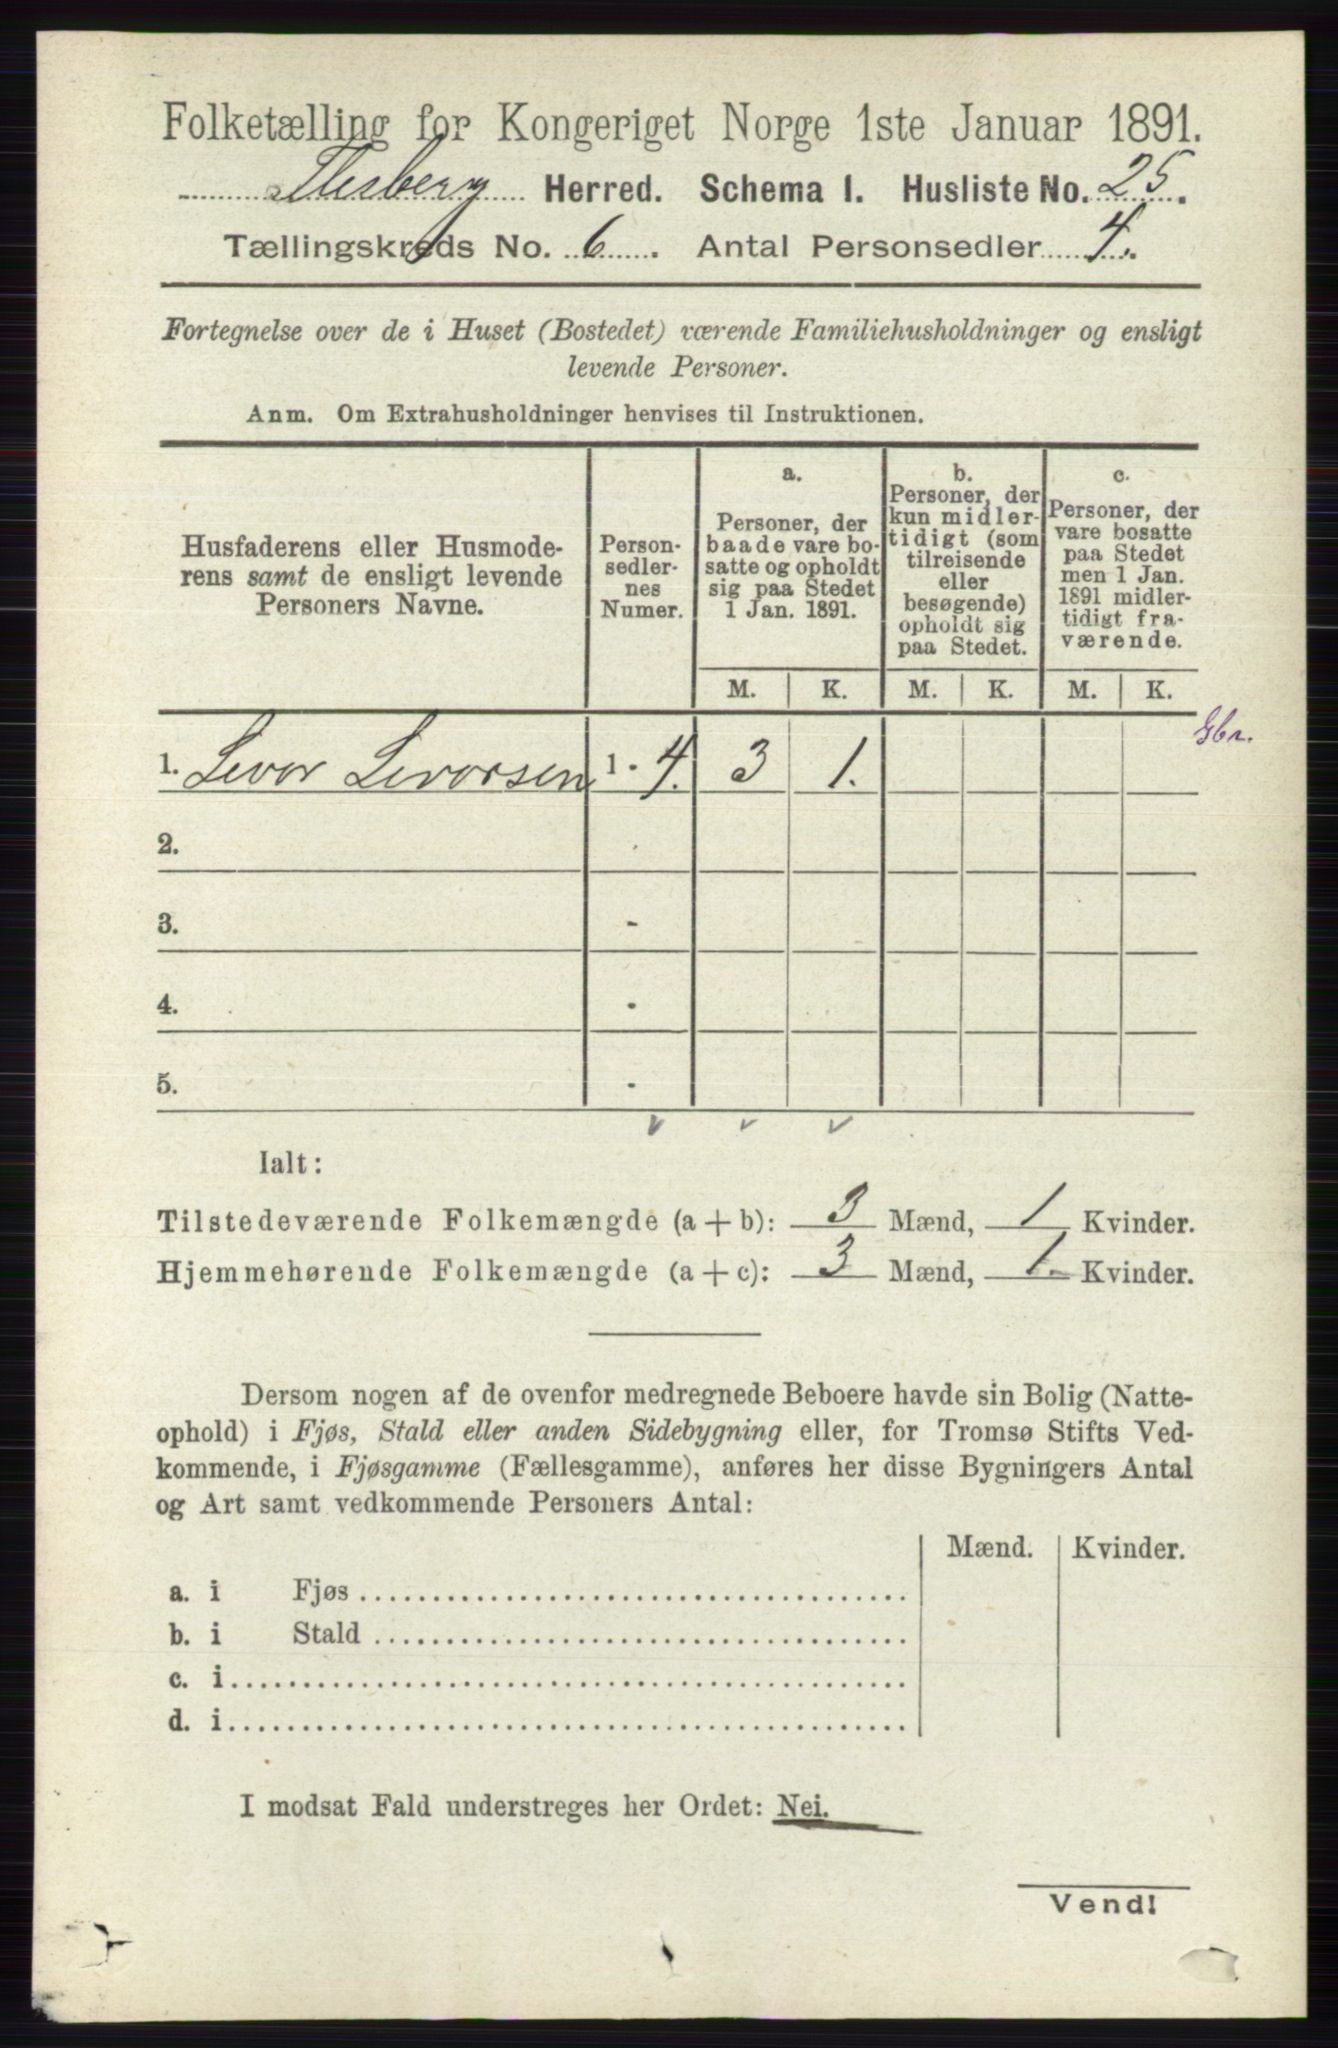 Folketælling for Kongeriget Norge 1ste Januar 1891.
Flesberg Herred. Schema I. Husliste No. 25.
Tællingskreds No. 6. Antal Personsedler 4.
Fortegnelse over de i Huset (Bostedet) værende Familiehusholdninger og ensligt
levende Personer.
Anm. Om Extrahusholdninger henvises til Instruktionen.
Husfaderens eller Husmode-
rens samt de ensligt levende
Personers Navne.
Person-
sedler-
nes
Numer.
a.
Personer, der
baade vare bo-
satte og opholdt
sig paa Stedet
1 Jan. 1891.
b.
Personer, der
kun midler-
tidigt (som
tilreisende
eller
besøgende)
opholdt sig
paa Stedet.
c.
Personer, der
vare bosatte
paa Stedet
men 1 Jan.
1891 midler-
tidigt fra-
værende.
M. K. M. K. M. K.
Gbr.
1. Levor Levorsen 1 - 4. 3 1.
2.
3. -
4. -
5. -
Ialt:
Tilstedeværende Folkemængde (a + b): 3 Mænd, 1 Kvinder.
Hjemmehørende Folkemængde (a + c): 3 Mænd, 1. Kvinder.
Dersom nogen af de ovenfor medregnede Beboere havde sin Bolig (Natte-
ophold) i Fjøs, Stald eller anden Sidebygning eller, for Tromsø Stifts Ved-
kommende, i Fjøsgamme (Fællesgamme), anføres her disse Bygningers Antal
og Art samt vedkommende Personers Antal:
Mænd. Kvinder.
a. i Fjøs
b. i Stald
c. i
d. i
I modsat Fald understreges her Ordet: Nei.
Vend!